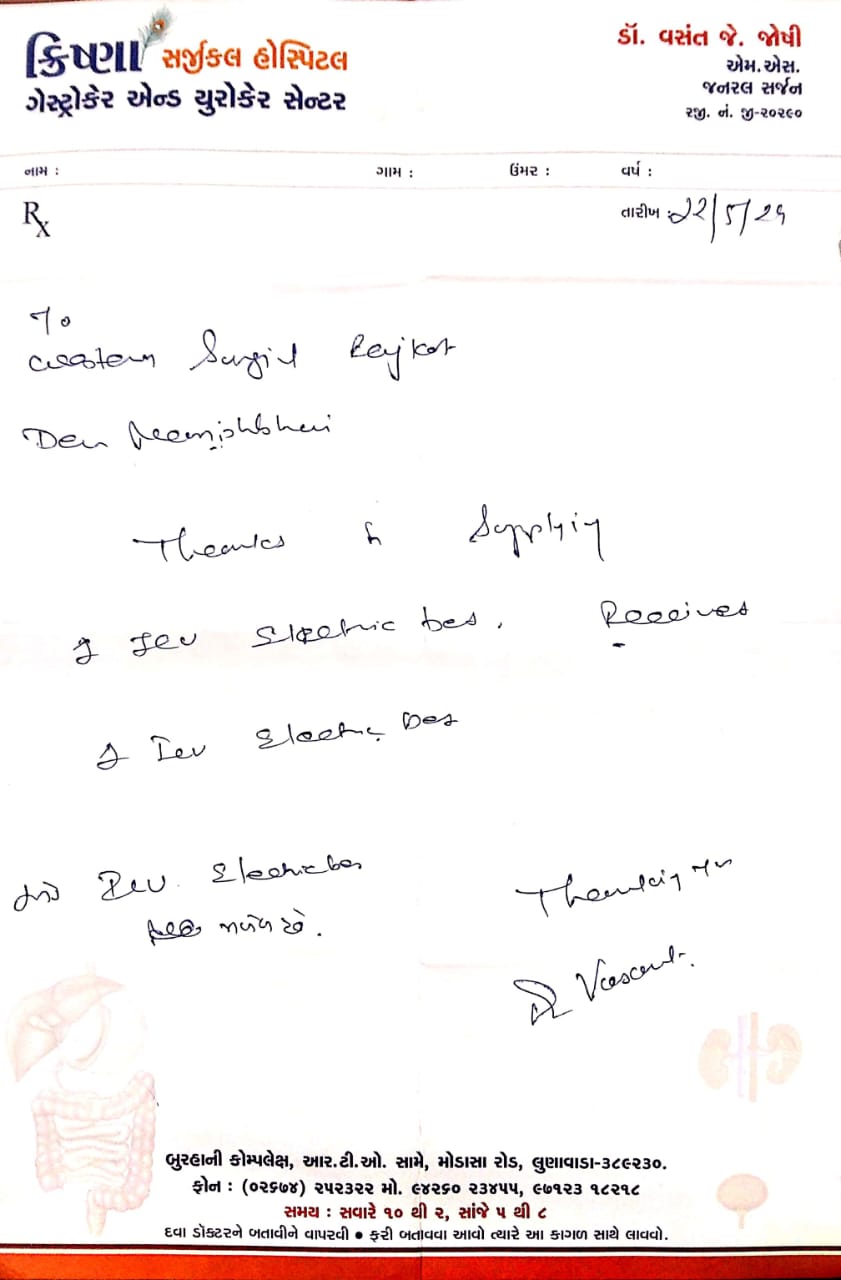 ક્રિષ્ણા સર્જીકલ હોસ્પિટલ
ગેસ્ટ્રોકેર એન્ડ યુરોકેર સેન્ટર
ડૉ. વસંત જે. જોષી
એમ.એસ.
જનરલ સર્જન
રજી. નં. જી-૨૦૨૯૦
નામ : ગામ : ઉંમર : વર્ષ :
Rx
તારીખ : 22/5/25
To
Western Surgical Rajkot
Dear
Thanks for Supplying
ICU Electric bed. Received
ICU Electric Bed
ICU Electric bed
Thanking you
Dr Vasant
બુરહાની કોમ્પલેક્ષ, આર.ટી.ઓ. સામે, મોડાસા રોડ, લુણાવાડા-૩૮૯૨૩૦.
ફોન : (૦૨૬૭૪) ૨૫૨૩૨૨ મો. ૯૪૨૬૦ ૨૩૪૫૫, ૯૭૧૨૩ ૧૮૨૧૮
સમય : સવારે ૧૦ થી ૨, સાંજે ૫ થી ૮
દવા ડૉકટરને બતાવીને વાપરવી • ફરી બતાવવા આવો ત્યારે આ કાગળ સાથે લાવવો.